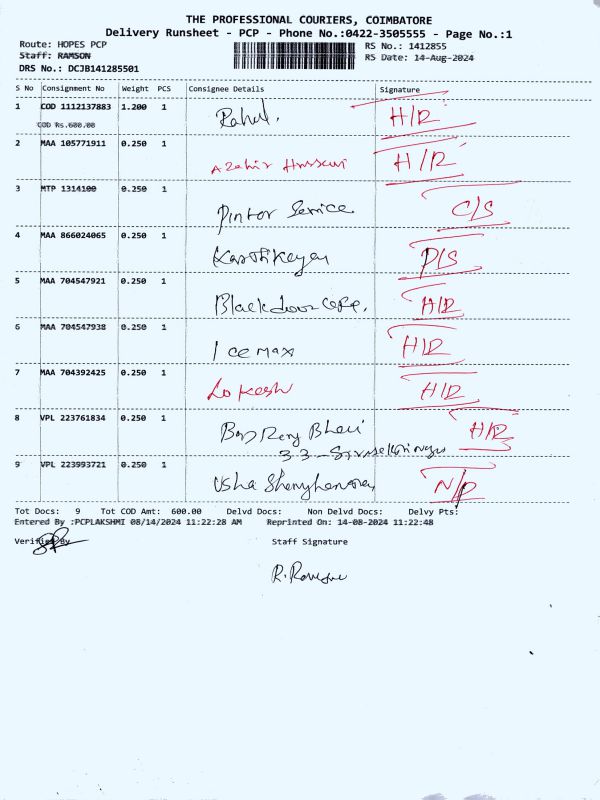 THE PROFESSIONAL COURIERS, COIMBATORE
Delivery Runsheet - PCP - Phone No.:0422-3505555 - Page No.:1
Route: HOPES PCP RS No.: 1412855
Staff: RAMSON RS Date: 14-Aug-2024
DRS No.: DCJB141285501
S No Consignment No Weight PCS Consignee Details Signature
1 COD 1112137883 1.200 1 Rahul. H/R
COD Rs.600.00
2 MAA 105771911 0.250 1 Hussain H/R
3 MTP 1314100 0.250 1 Pintor Service C/S
4 MAA 866024065 0.250 1 Karthikeyan P/S
5 MAA 704547921 0.250 1 Blackdoor H/R
6 MAA 704547938 0.250 1 Ice max H/R
7 MAA 704392425 0.250 1 Lokesh H/R
8 VPL 223761834 0.250 1 H/R
33-
9 VPL 223993721 0.250 1 Usha N/P
Tot Docs: 9 Tot COD Amt: 600.00 Delvd Docs: Non Delvd Docs: Delvy Pts:
Entered By :PCPLAKSHMI 08/14/2024 11:22:28 AM Reprinted On: 14-08-2024 11:22:48
Verified By Staff Signature